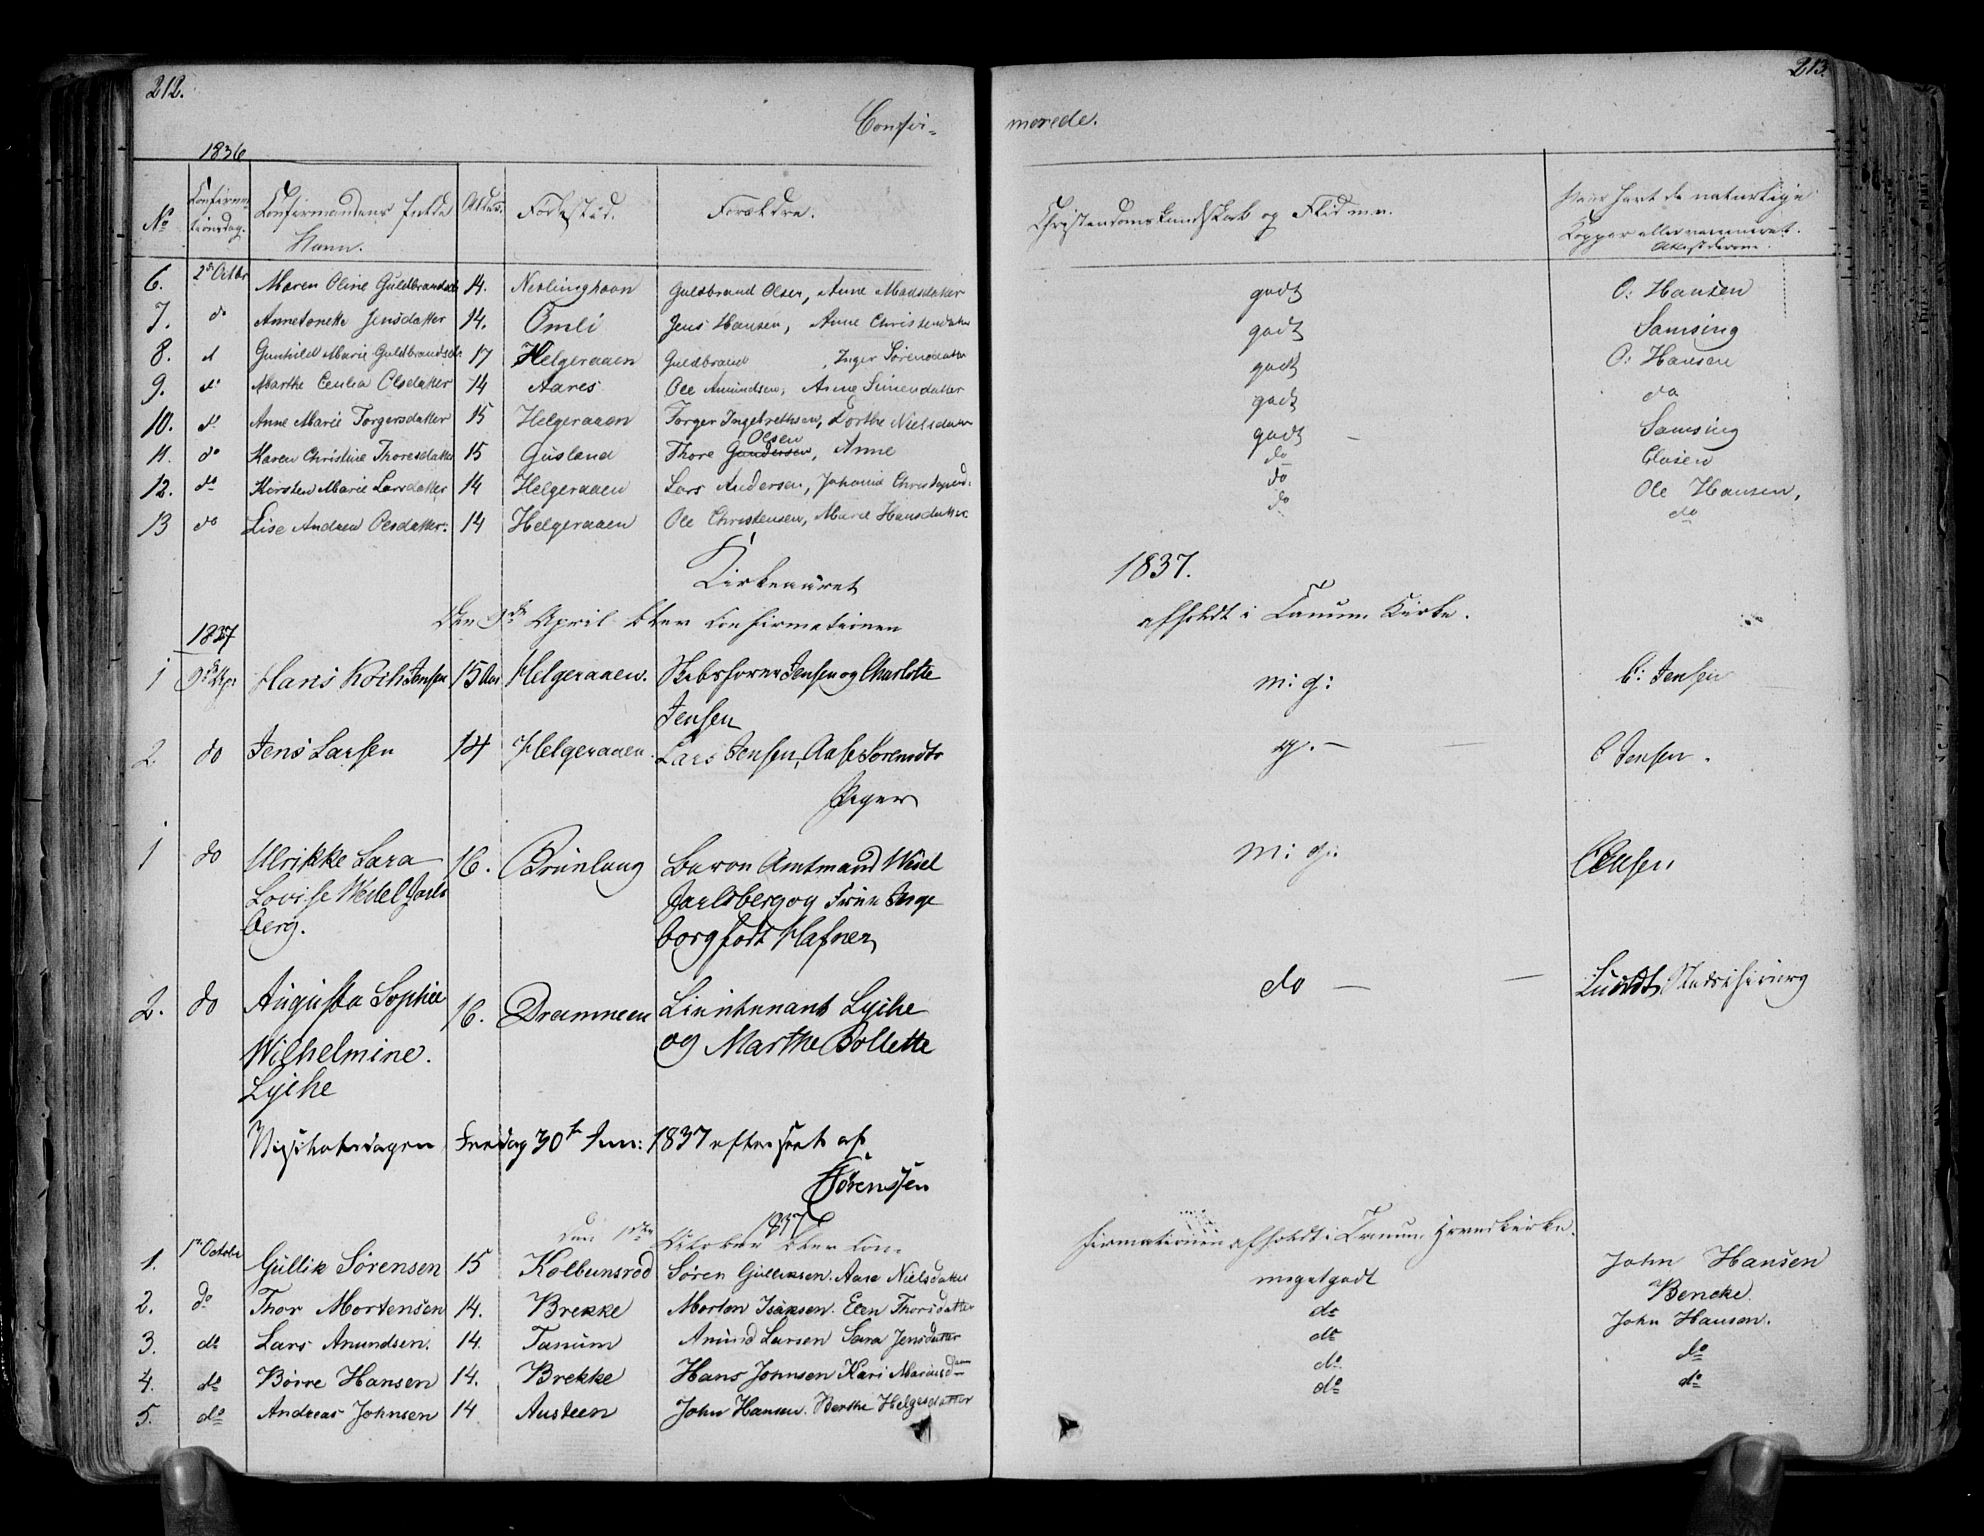 212. 213.
Confir- merede.
1836
No Confirmationsdag. Confirmandens fulde Navn. Alder. Fødested. Forældre. Christendoms Kundskab og Flid m.v. havt de naturlige Kopper eller vaccineret.
6. 2d Octbr Maren Oline Guldbrandsd 14. Nevlinghavn Guldbrand Olsen, Anne Madsdatter godt O: Hansen
7. do Annetonette Jensdatter 14. Omli Jens Hansen, Anne Christensdatter godt Samsing
8. d Gunhild Marie Guldbrandsdr 17 Helgeraaen Guldbrand , Inger Sørensdatter godt O: Hansen
9. do Marthe Cecilia Olsdatter 14 Aares Ole Amundsen, Anne Simensdatter godt do
10. do Anne Marie Torgersdatter 15 Helgeraaen Torger Ingebrethsen, Dorthe Nielsdatter godt – Samsing
11. do Maren Christine Thoresdatter 15 Gusland Thore Gundersen Olsen, Anne do Clasen
12. do Kirsten Marie Larsdatter 14 Helgeraaen Lars Andersen, Johanne Christophersd: do Ole Hansen,
13 do Lise Andrea Olsdatter. 14 Helgeraaen Ole Christensen, Marie Hansdatter do do
Kirkeaaret 1837.
Den 9de April blev Confirmationen afholdt i Tanum Kirke.
1837
1 9de Apr Hans Koch Jensen 15 Aar Helgeraaen. Skibsfører Jensen og Charlotte m: g: C: Jensen
Jensen
2 do Jens Larsen 14 Helgeraaen. Lars Jensen, Aase Sørensdtr g. – C Jensen.
Piger
1 do Ulrikke Lara 16. Brunlaug Baron Amtmand Wedel m: g:
Lovise Wedel Jarls Jarlsberg og Frue Inge
berg. borg født Hafner
2. do Augusta Sophie 16. Drammen Lieutenant Lyche do –
Wilhelmine. og Marthe Bollette
Lyche
Visitatsdagen Fredag 30te Jun: 1837 efterseet af
Sørenssen
1837
Den 1ste October blev Con- firmationen afholdt i Tanum Hovedkirke.
1. 1ste Octobr Gullik Sørensen 15 Kolbunsrød Søren Gulliksen. Aase Nielsdatter megetgodt John Hansen
2. do Thor Mortensen 14. Brekke Morten Isaksen. Elen Thorsdatter do Bencke.
3. do Lars Amundsen. 14. Tanum Amund Larsen Sara Jensdatter do John Hansen.
4. do Børre Hansen 14. Brekke Hans Johnsen Kari Mariusd do do
5. do Andreas Johnsen 14 Austeen John Hansen. Berthe Helgesdatter do do